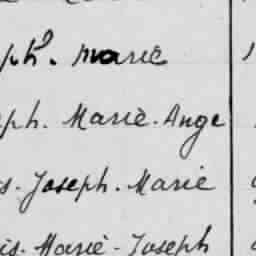 ph. Marie
eph. Marie. Ange
s. Joseph. Marie
is. Marie - Joseph